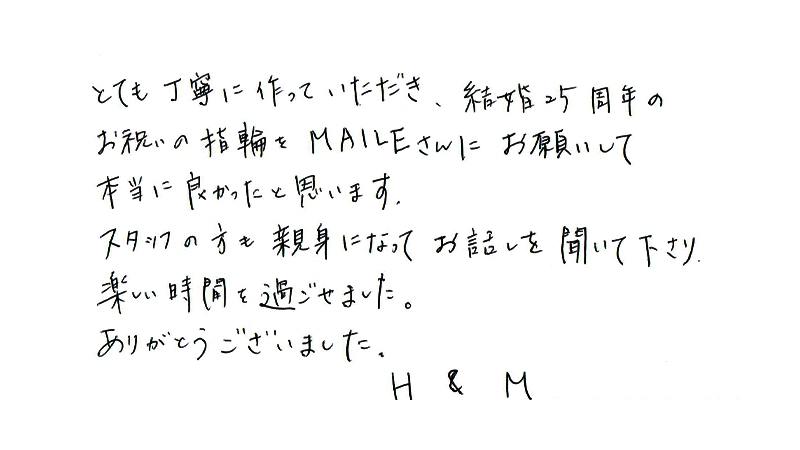 とても丁寧に作っていただき、結婚25周年の
お祝いの指輪をMAILEさんにお願いして
本当に良かったと思います。
スタッフの方も親身になってお話しを聞いて下さり、
楽しい時間を過ごせました。
ありがとうございました。
H & M